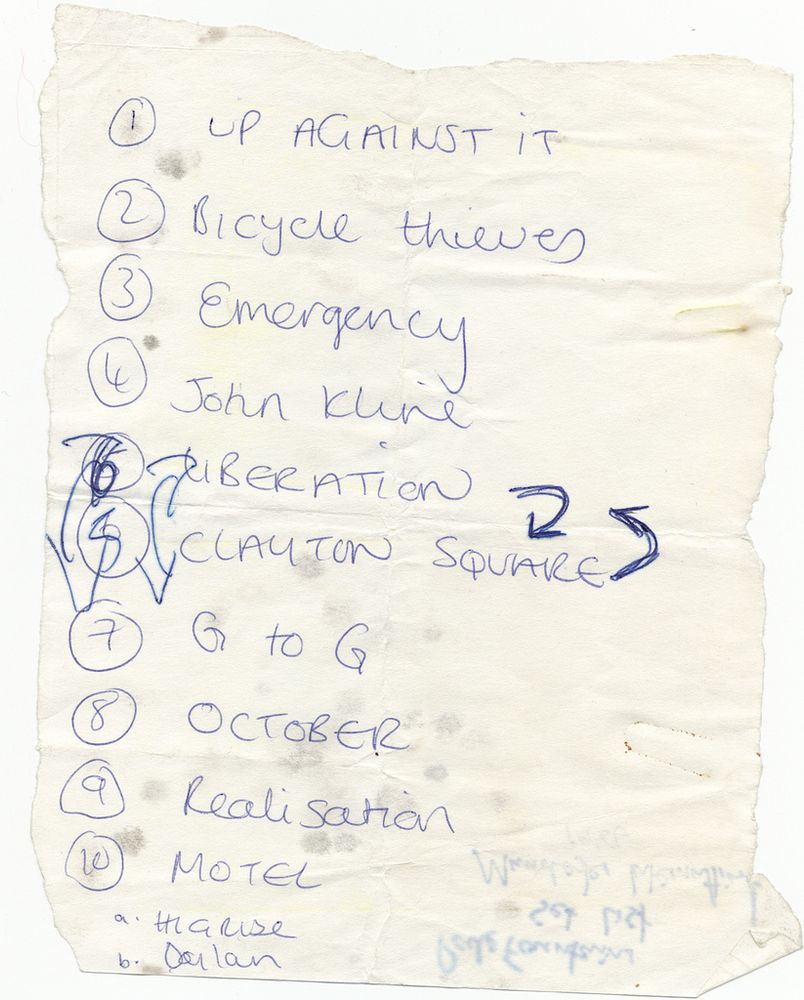 1 UP AGAINST IT
2 Bicycle thieves
3 Emergency
4 John Kline
6 LIBERATION
5 CLAYTON SQUARE
7 G to G
8 OCTOBER
9 Realisation
10 MOTEL
a.
b.
Pale Fountains
Set list
Manchester International